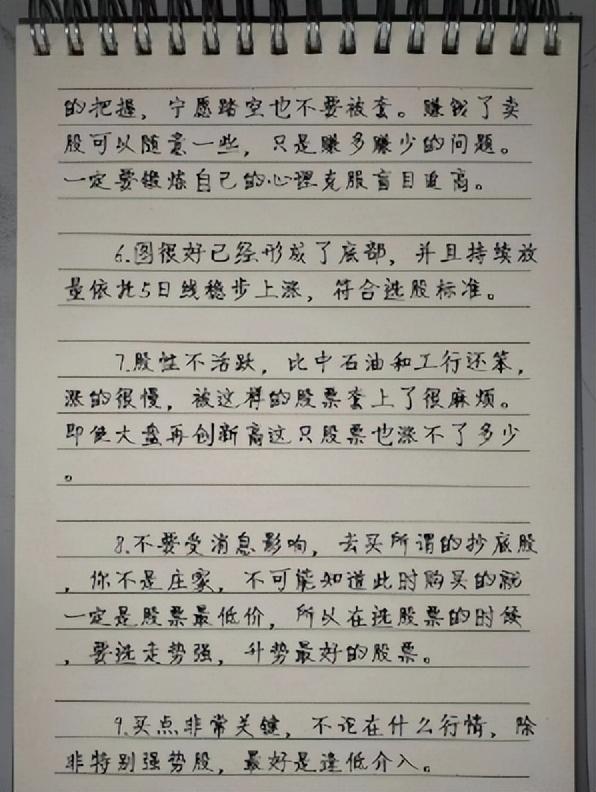 的把握，宁愿踏空也不要被套。赚钱了卖
股可以随意一些，只是赚多赚少的问题。
一定要锻炼自己的心理克服盲目追高。
6.图很好已经形成了底部，并且持续放
量依托5日线稳步上涨，符合选股标准。
7.股性不活跃，比中石油和工行还笨，
涨的很慢，被这样的股票套上了很麻烦。
即使大盘再创新高这只股票也涨不了多少
。
8.不要受消息影响，去买所谓的抄底股
，你不是庄家，不可能知道此时购买的就
一定是股票最低价，所以在选股票的时候
，要选走势强，升势最好的股票。
9.买点非常关键，不论在什么行情，除
非特别强势股，最好是逢低介入。